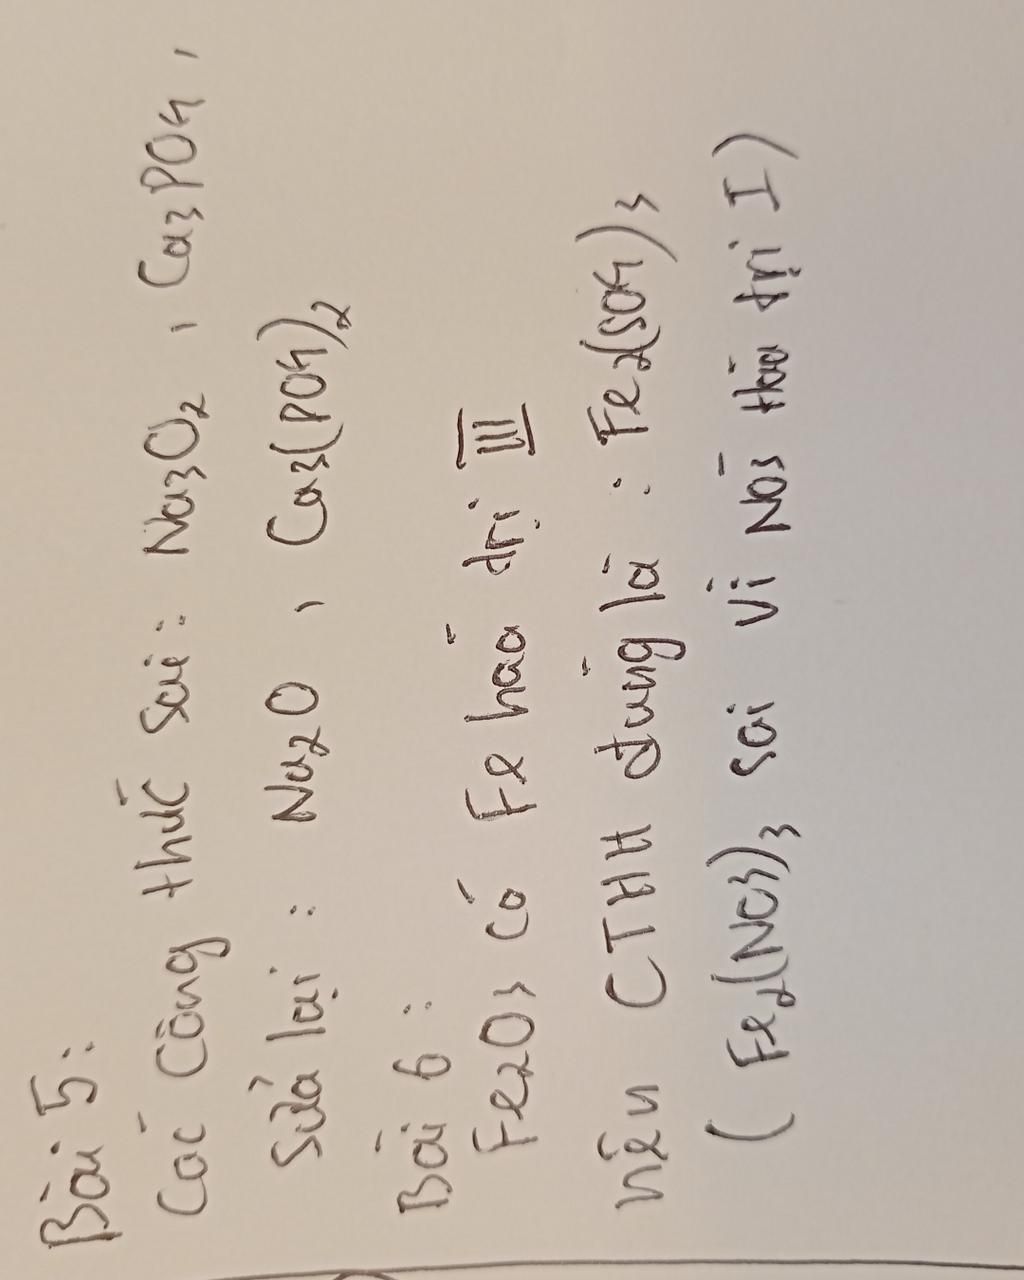 Bài 5:
Các công thức sai: Na3O2, Ca3PO4,
Sửa lại: Na2O, Ca3(PO4)2
Bài 6:
Fe2O3 có Fe hoá trị III
nên CTHH đúng là: Fe2(SO4)3
(Fe2(NO3)3 sai vì NO3 hóa trị I)